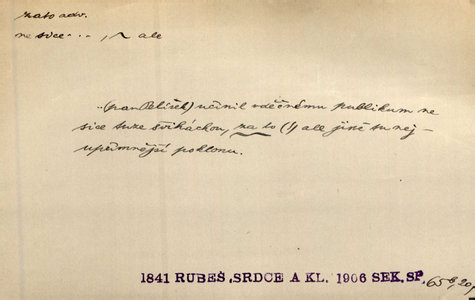 zato adv.
ne sice..., ~ ale
..(pan Pelíšek) učinil vděčnému publikum ne
sice tuze šviháckou, za to (!) ale jistě tu nej-
upřímnější poklonu.
1841 RUBEŠ, SRDCE A KL. 1906 SEK. SP. 65 8, 207